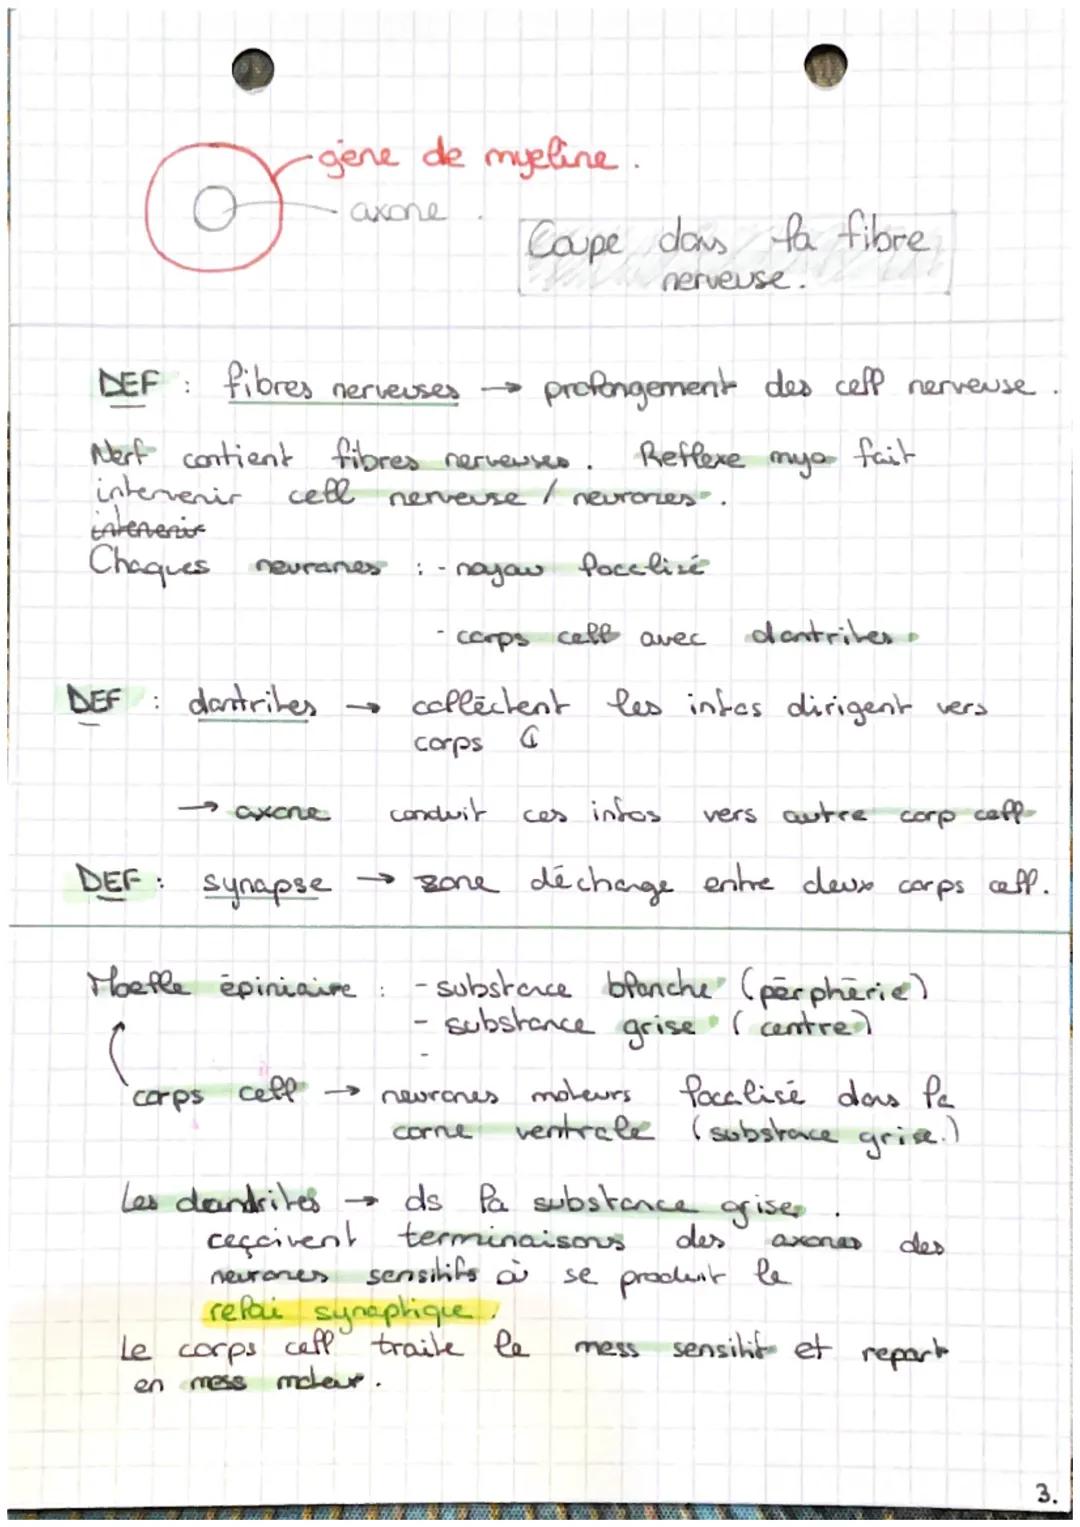 gène de myeline.
axone.
Coupe dans la fibre
nerveuse.
DEF : fibres nerveuses → prolongement des cell nerveuse.
Nerf contient fibres nerveuses. Reflexe myo fait
intervenir cell nerveuse / neurones.
intervenir
Chaques neurones : - noyau localisé
- corps cell avec dantrites
DEF : dantrites → collèctent les infos dirigent vers
corps C
→ axone conduit ces infos vers autre corp cell
DEF : synapse → zone déchange entre deux corps cell.
Moelle épiniaire : - substance blanche (périphérie)
- substance grise (centre)
-
corps cell → neurones moteurs localisé dans la
corne ventrale (substance grise.)
Les dandrites → ds la substance grise.
reçoivent terminaisons des axones des
neurones sensitifs où se produit le
relai synaptique.
Le corps cell traite le mess sensitif et repart
en mess moteur.
3.